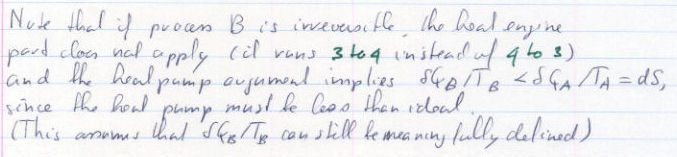 Note that if process B is irreversible, the heat engine
part does not apply (it runs 3 to 4 instead of 4 to 3)
and the heat pump argument implies δq_B/T_B < δq_A/T_A = dS,
since the heat pump must be less than ideal.
(This assumes that δq_B/T_B can still be meaningfully defined)